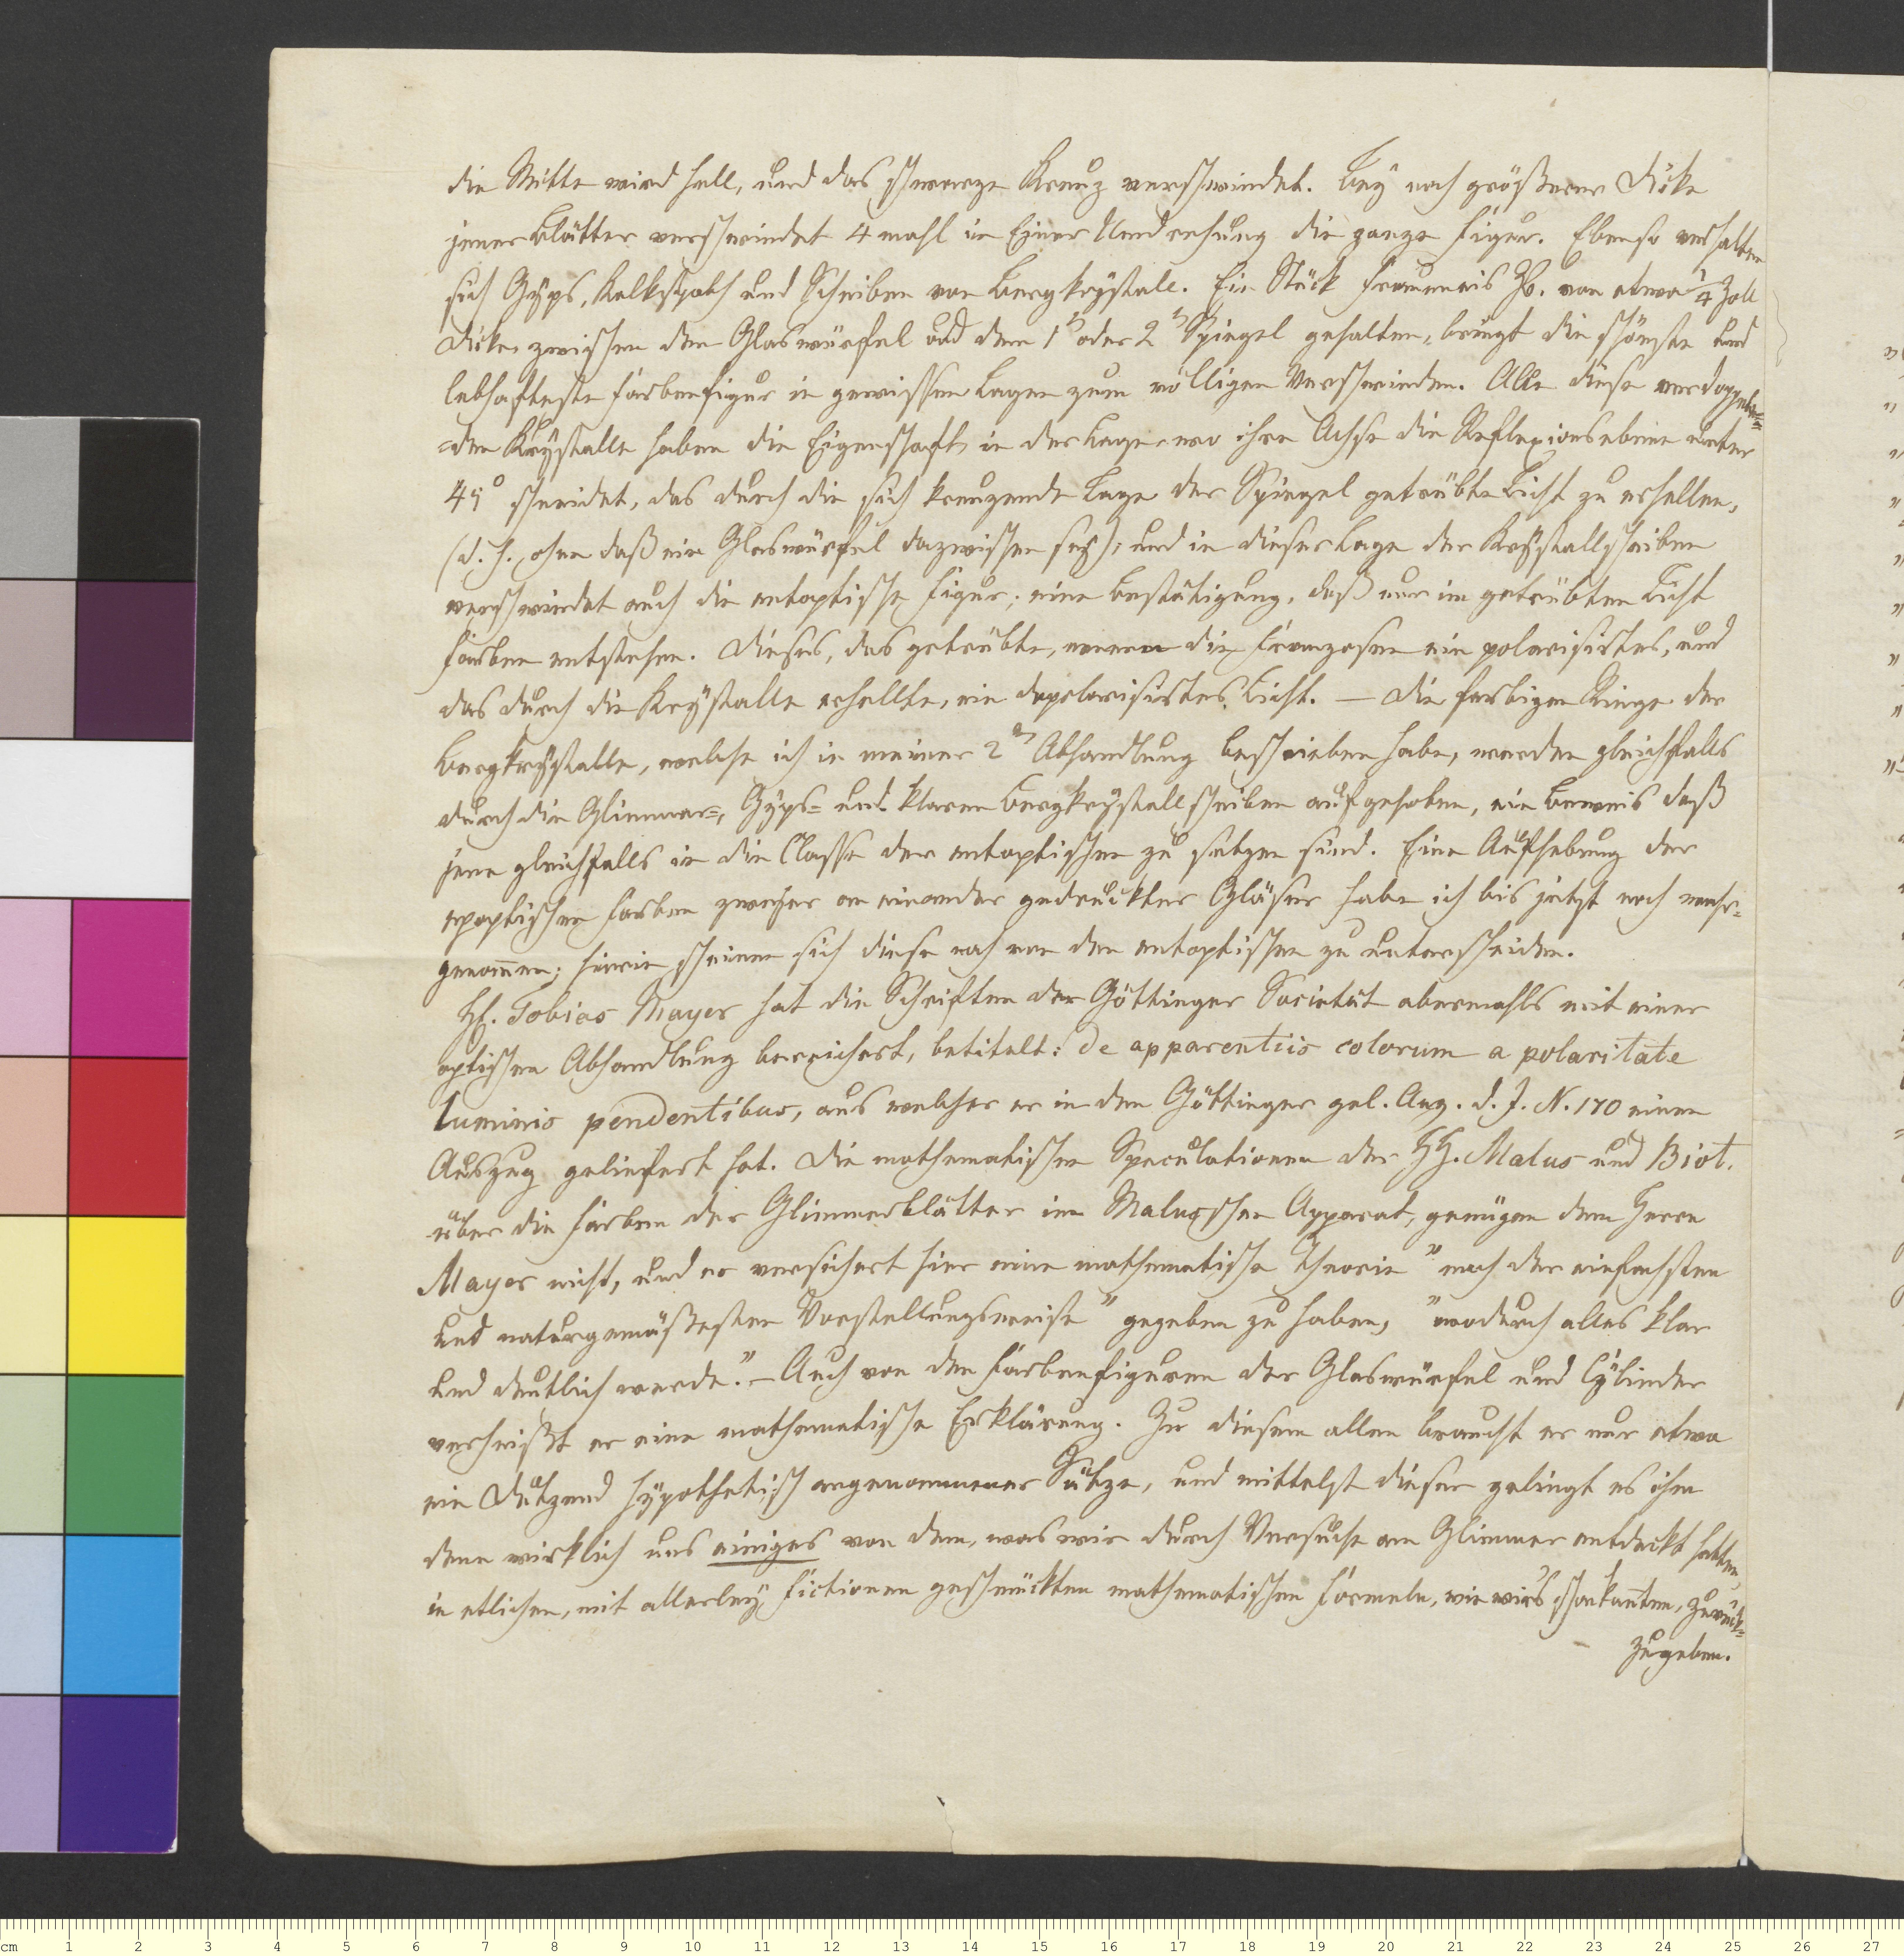 die Mitte wird hell, und das schwarze Kreuz verschwindet. Bey noch größerer Dicke
jener Blätter verschwindet 4 mahl in Einer Umdrehung die ganze Figur. Ebenso verhalten
sich Gyps, Kalkspath und Scheiben von Bergkrystall. Ein Stück Fraueneis zB. von etwa 1/4 Zoll
Dicke, zwischen den Glaswürfel und den 1n oder 2n Spiegel gehalten, bringt die schönste und
lebhafteste Farbenfigur in gewissen Lagen zum völligen Verschwinden. Alle diese verdoppeln=
=den Krystalle haben die Eigenschaft, in der Lage, wo ihre Achse die Reflexionsebene unter
45° schneidet, das durch die sich kreuzende Lage der Spiegel getrübte Licht zu erhellen,
(d. h. ohne daß ein Glaswürfel dazwischen sey), und in dieser Lage der Krystallscheiben
verschwindet auch die entoptische Figur; eine Bestätigung, daß nur im getrübten Licht
Farben entstehen. Dieses, das getrübte, nennen die Franzosen ein polarisirtes, und
das durch die Krystalle erhellte, ein depolarisirtes Licht. — Die farbigen Ringe der
Bergkrystalle, welche ich in meiner 2n Abhandlung beschrieben habe, werden gleichfalls
durch die Glimmer=, Gyps= und klaren Bergkrystallscheiben aufgehoben, ein Beweis daß
jene gleichfalls in die Classe der entoptischen zu setzen sind. Eine Aufhebung der
epoptischen Farben zweyer an einander gedruckter Gläser habe ich bis jetzt noch wahr=
genom̄en; hierin scheinen sich diese noch von den entoptischen zu unterscheiden.
H. Tobias Mayer hat die Schriften der Göttinger Societät abermahls mit einer
optischen Abhandlung bereichert, betitelt: de apparentiis colorum a polaritate
luminis pendentibus, aus welcher er in den Göttinger gel. Anz. d. J. N. 170 einen
Auszug geliefert hat. Die mathematischen Speculationen der HH. Malus und Biot.
über die Farben der Glimmerblätter im Malusschen Apparat, genügen dem Herrn
Mayer nicht, und er versichert hier eine mathematische Theorie "nach der einfachsten
und naturgemäßesten Vorstellungsweise" gegeben zu haben, "wodurch alles klar
und deutlich werde." — Auch von den Farbenfiguren der Glaswürfel und Cylinder
verheißt er eine mathematische Erklärung. Zu diesem allen braucht er nur etwa
ein Dutzend hypothetisch angenommener Sätze, und mittelst dieser gelingt es ihm
denn wirklich uns einiges von dem, was wir durch Versuche am Glimmer entdeckt hatten,
in etlichen, mit allerley Fictionen geschmückten mathematischen Formeln, wie wirs schon kan̄ten, zurück=
zugeben.